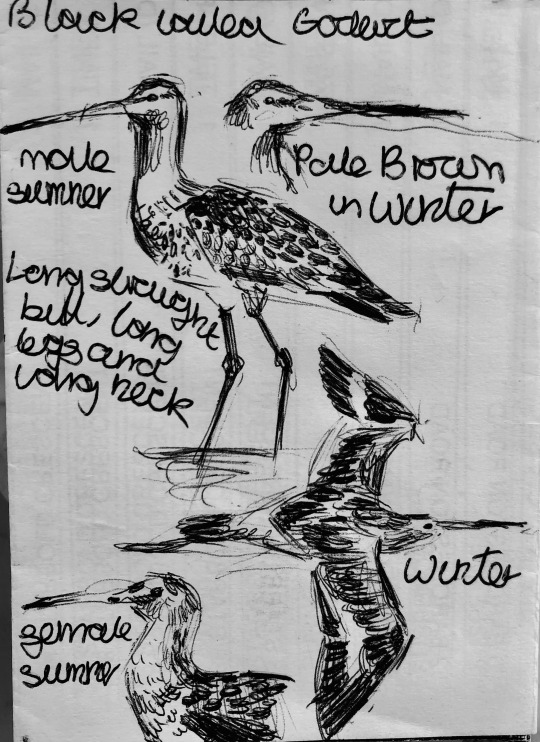 Black tailed Godwit
male
summer
Pale Brown
in Winter
Long straight
bill, long
legs and
long neck
Winter
female
summer